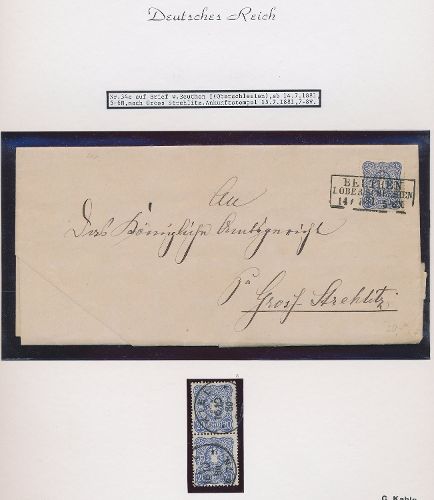 Deutsches Reich
auf Brief v.Beuthen I(Oberschlesien),ab 14.7.1881,
nach Gross Strehlitz.Ankunftstempel 15.7.1881,7-8V.
BEUTHEN
I OBERSCHLESIEN
14/
An
Das Königliche Amtsgericht
Gross-Strehlitz
G. Kahle